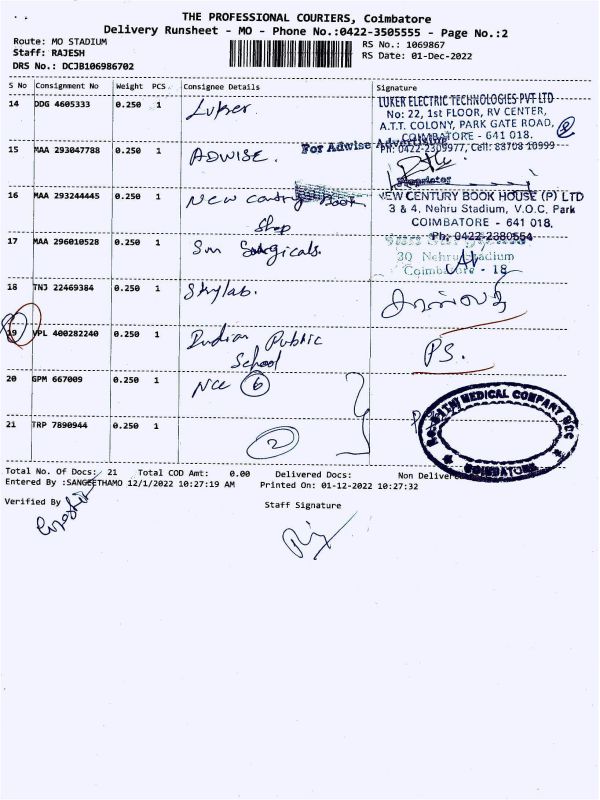 THE PROFESSIONAL COURIERS, Coimbatore
Delivery Runsheet - MO - Phone No.:0422-3505555 - Page No.:2
Route: MO STADIUM
RS No.: 1069867
Staff: RAJESH
RS Date: 01-Dec-2022
DRS No.: DCJB106986702
S No Consignment No Weight PCS Consignee Details Signature
14 DDG 4605333 0.250 1 Luker.
LUKER ELECTRIC TECHNOLOGIES PVT LTD
No: 22, 1st FLOOR, RV CENTER,
A.T.T. COLONY, PARK GATE ROAD,
COIMBATORE - 641 018.
Ph: 0422-2309977, Cell: 88708 10999
15 MAA 293047788 0.250 1 ADWISE.
For Adwise Advertising
Proprietor
16 MAA 293244445 0.250 1 New century Book
Shop
NEW CENTURY BOOK HOUSE (P) LTD
3 & 4, Nehru Stadium, V.O.C. Park
COIMBATORE - 641 018.
Ph: 0422-2380554
17 MAA 296010528 0.250 1 Sun Surgicals.
30 Nehru Stadium
Coimbatore - 18
18 TNJ 22469384 0.250 1 Skylab.
19 VPL 400282240 0.250 1 Indian Public
School
PS.
20 GPM 667009 0.250 1 NCC 6
21 TRP 7890944 0.250 1
2
MEDICAL COMPANY NCC
COIMBATORE
Total No. Of Docs: 21 Total COD Amt: 0.00 Delivered Docs: Non Delivered
Entered By :SANGEETHAMO 12/1/2022 10:27:19 AM Printed On: 01-12-2022 10:27:32
Verified By
Staff Signature